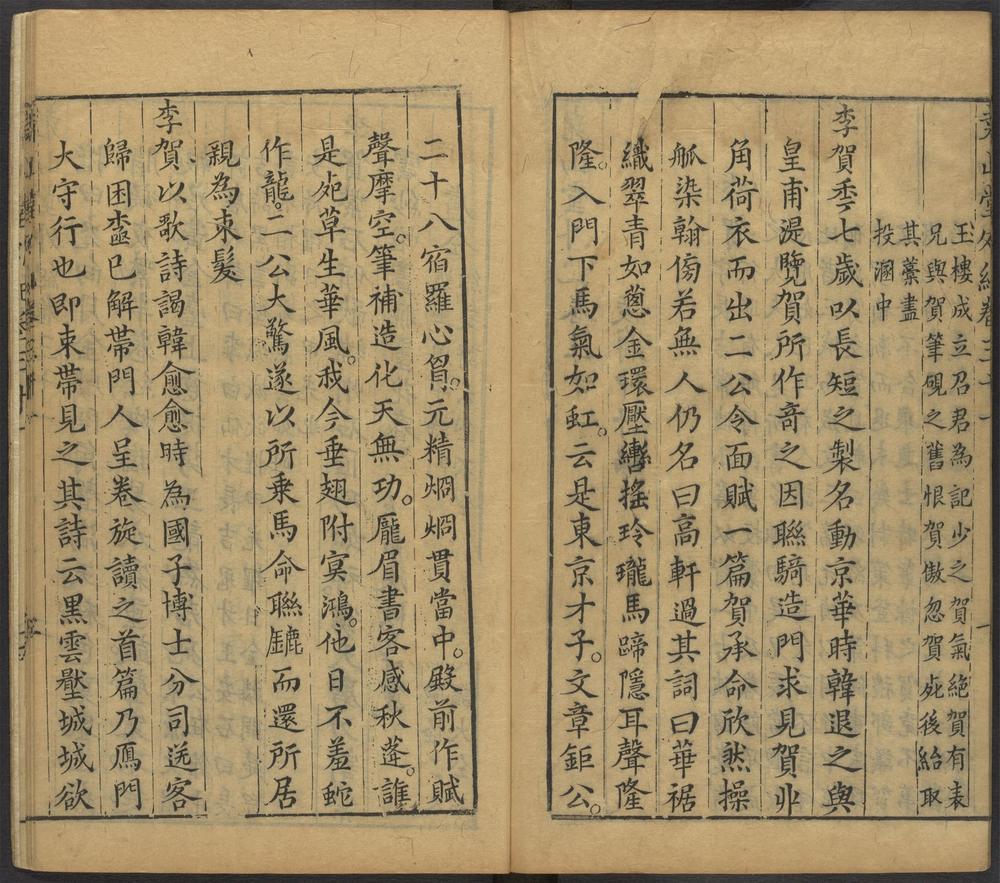 堯山堂外紀卷三十一
玉樓成立召君為記少之賀氣絕賀有表
兄與賀筆硯之舊恨賀傲忽賀死後紿取
其藁盡
投溷中
李賀年七歲以長短之製名動京華時韓退之與
皇甫湜覽賀所作奇之因聯騎造門求見賀丱
角荷衣而出二公令面賦一篇賀承命欣然操
觚染翰傍若無人仍名曰高軒過其詞曰華裾
織翠青如蔥金環壓轡搖玲瓏馬蹄隱耳聲隆
隆。入門下馬氣如虹。云是東京才子。文章鉅公。
二十八宿羅心胷。元精炯炯貫當中。殿前作賦
聲摩空。筆補造化天無功。厖眉書客感秋蓬。誰
是死草生華風。我今垂翅附冥鴻。他日不羞蛇
作龍。二公大驚遂以所乘馬命聯鑣而還所居
親為束髮
李賀以歌詩謁韓愈愈時為國子博士分司送客
歸困極已解帶門人呈卷旋讀之首篇乃鴈門
大守行也即束帶見之其詩云黑雲壓城城欲